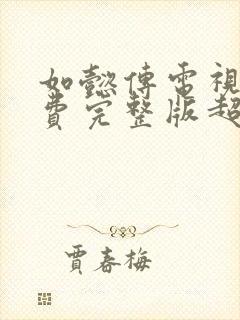 如懿傳電視
費完整版超
賈春梅